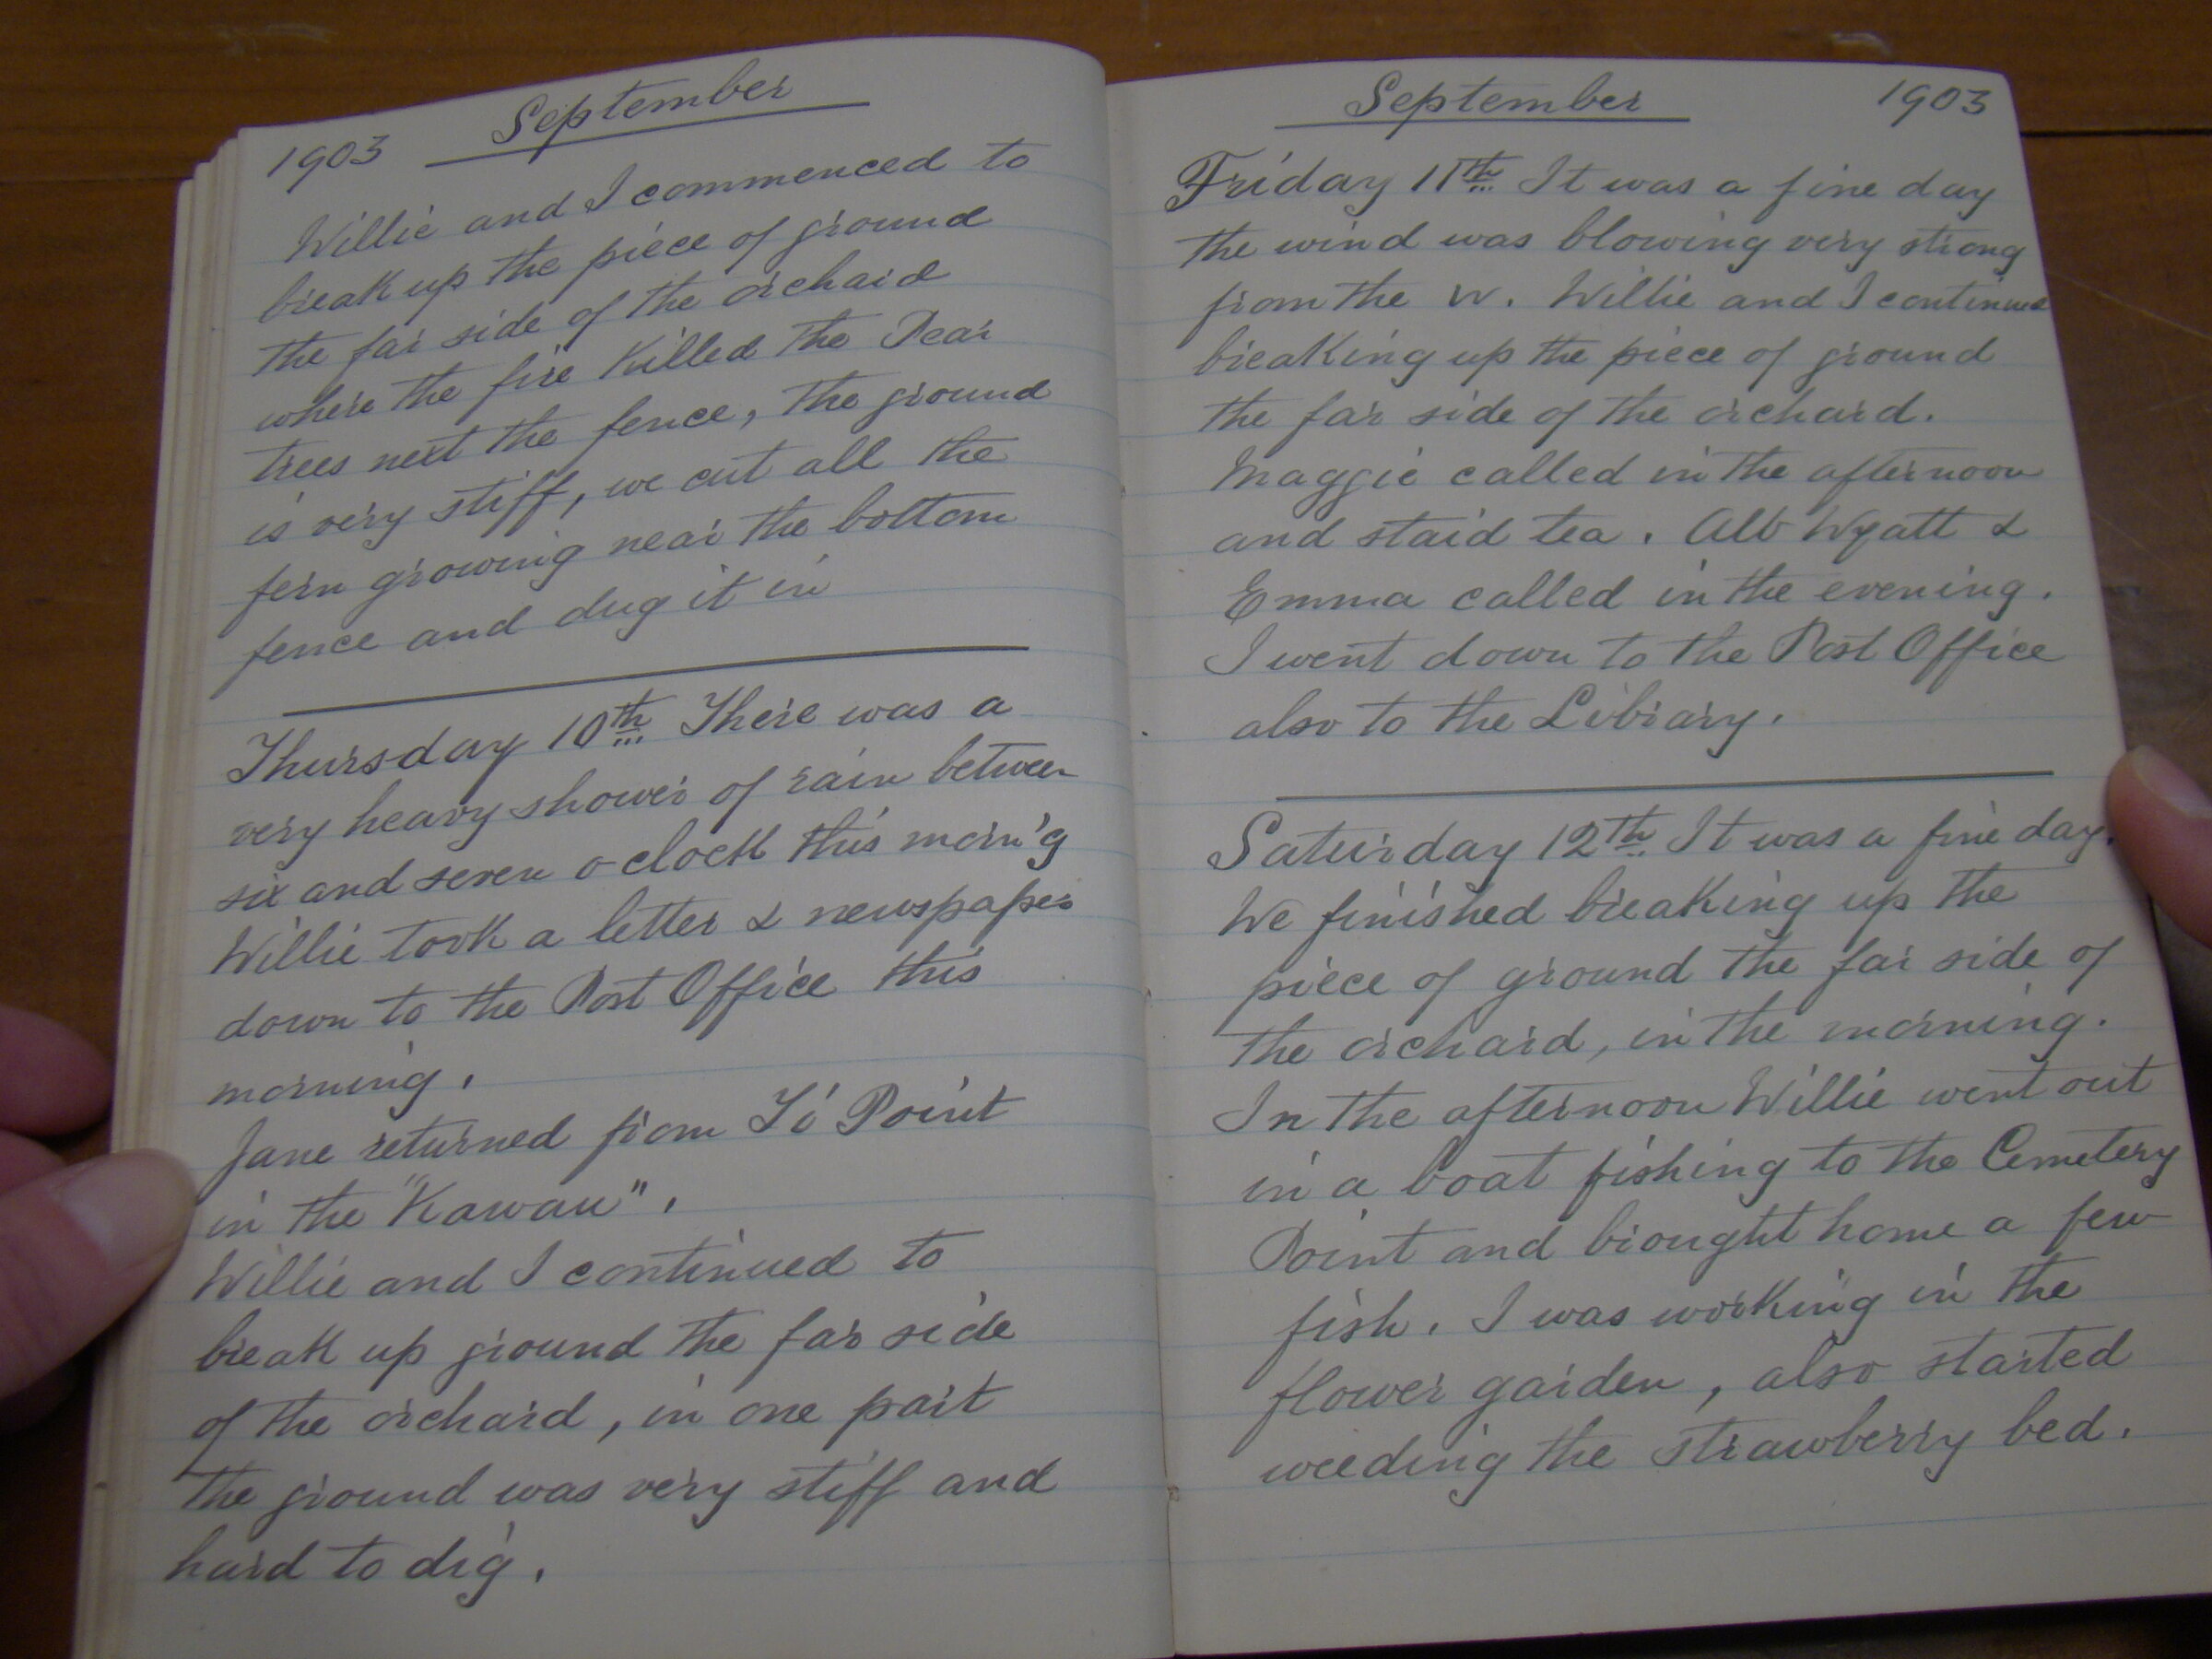 1903 September
Willie and I commenced to
break up the piece of ground
the far side of the orchard
where the fire killed the Pear
trees next the fence, the ground
is very stiff, we cut all the
fern growing near the bottom
fence and dug it in
Thursday 10th There was a
very heavy shower of rain between
six and seven o clock this morn'g
Willie took a letter & newspaper
down to the Post Office this
morning.
Jane returned from Ti Point
in the "Kawau".
Willie and I continued to
break up ground the far side
of the orchard, in one part
the ground was very stiff and
hard to dig.
September 1903
Friday 11th It was a fine day
the wind was blowing very strong
from the W. Willie and I continued
breaking up the piece of ground
the far side of the orchard.
Maggie called in the afternoon
and staid tea. Alb Wyatt &
Emma called in the evening.
I went down to the Post Office
also to the Library.
Saturday 12th It was a fine day.
We finished breaking up the
piece of ground the far side of
the orchard, in the morning.
In the afternoon Willie went out
in a boat fishing to the Cemetery
Point and brought home a few
fish. I was working in the
flower garden, also started
weeding the strawberry bed.